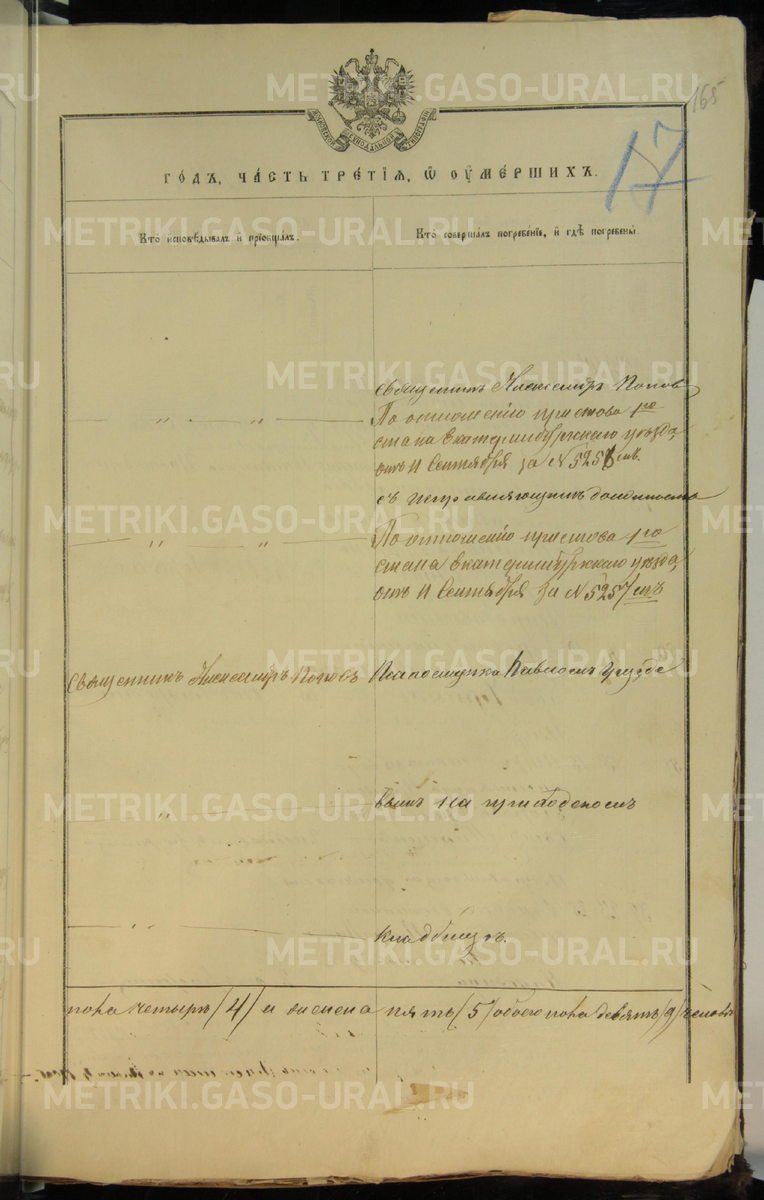 165
17
СѴНОДАЛЬНОЙ
ГО́ДЪ, ЧА́СТЬ ТРЕ́ТІѦ, Ѡ ОУМЕ́РШИХЪ.
Кто̀ исповѣ́дывалъ и҆ прїѡбща́лъ.
Кто̀ соверша́лъ погребе́нїе, и҆ гдѣ̀ погребены̀.
Священникъ Александръ Попов
— „ — „ —
По отношенію пристава 1го
стана Екатеринбургскаго уѣзда,
отъ 11 Сентября за № 5258 мъ.
съ исправляющимъ должность
— „ — „ —
По отношенію пристава 1го
стана Екатеринбургскаго уѣзда,
отъ 11 Сентября за № 5257 мъ
Священникъ Александръ Поповъ
Псаломщика Павломъ
— „ —
вымъ на приходскомъ
— „ — „ —
кладбищѣ.
пола четыре /4/ и женска пять /5/ обоего пола девять /9/ человѣкъ
METRIKI.GASO-URAL.RU